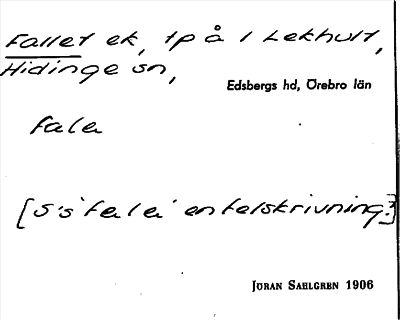 Fallet ek, tp å 1 Lekhult,
Hidinge sn,
Edsbergs hd, Örebro län
fala
[s's 'fala' en felskrivning?]
Jöran Sahlgren 1906